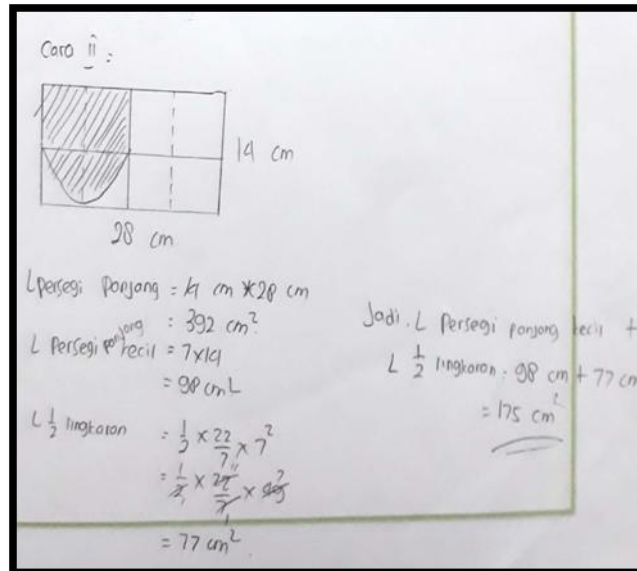 Cara ii :
14 cm
28 cm
L persegi panjang = 14 cm × 28 cm
= 392 cm²
L persegi panjang kecil = 7×14
= 98 cm²
L 1/2 lingkaran = 1/2 × 22/7 × 7²
= 1/2 × 22/7 × 49
= 77 cm²
Jadi. L persegi panjang kecil +
L 1/2 lingkaran : 98 cm + 77 cm
= 175 cm²